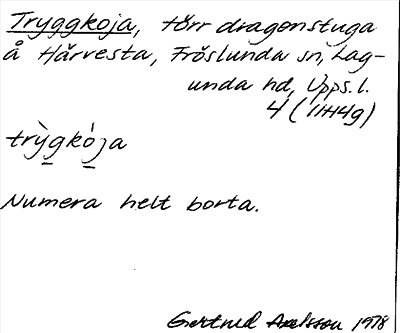 Tryggkoja, förr dragonstuga
å Härvesta, Fröslunda sn, Lag-
unda hd, Upps. l.
4 (11H4g)
trỳgkója
Numera helt borta.
Gertrud Axelsson 1978